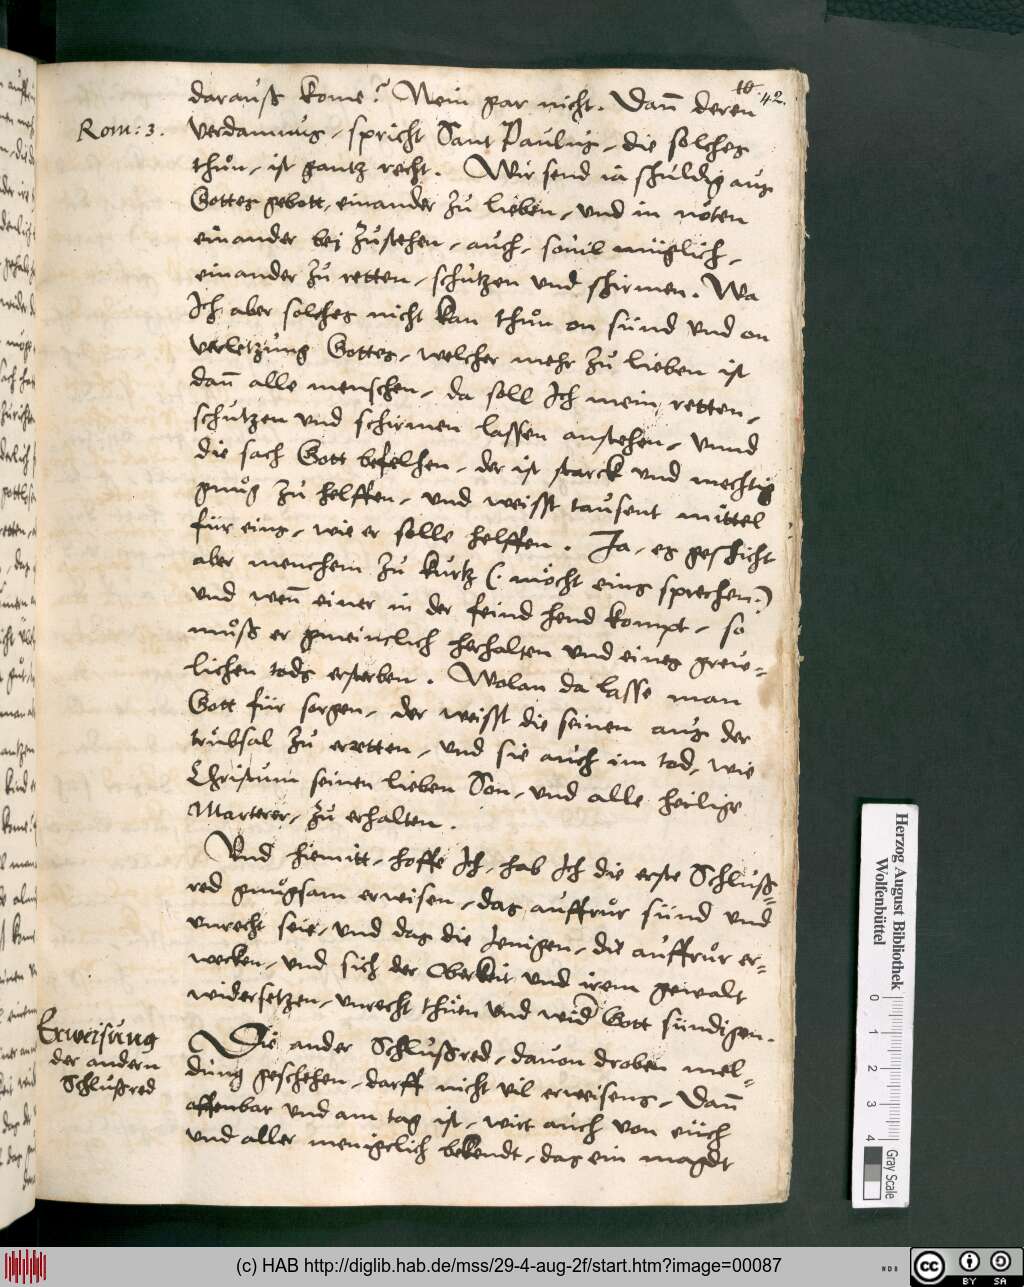 42.
darauß kome? Nein gar nicht. Dann deren
Rom: 3.
verdamnus, spricht Sant Paulus, die solches
thůn, ist gantz recht. Wir send ia schuldig aus
Gottes gebott, einander zu lieben, und in nöten
einander bej zustehen, auch, souil müglich,
einander zu retten, schützen und schirmen. Wa
Ich aber solches nicht kan thůn on sünd und on
verletzung Gottes, welcher mehr zu lieben ist
dann alle menschen, da soll Ich mein retten,
schützen und schirmen lassen anstehen, unnd
die sach Gott befelhen, der ist starck und mechtig
gnůg zu helffen, und weisst tausent mittel
für eins, wie er solle helffen. Ja, es geschicht
aber menchem zu kurtz (: möcht eins sprechen:)
und wenn einer in der feind hend kompt, so
můß er gmeinclich herhalten und eines greu=
lichen tods ersterben. Wolan da lasse man
Gott für sorgen, der weisst die seinen aus der
trübsal zu erretten, und sie auch im tod, wie
Christum seinen lieben Son, und alle heilige
Marterer, zu erhalten.
Und hiemitt, hoffe Ich, hab Ich die erste Schluß=
red gnůgsam erwisen, das auffrůr sünd und
unrecht seie, und das die Jenigen, die auffrůr er=
wecken, und sich der Oberkeit und irem gewalt
widersetzen, unrecht thüen und wid Gott sündigen.
Erweisung
der andern
Schlußred
Die ander Schlußred, dauon droben mel=
dung geschehen, darff nicht vil erweisens, Dann
offenbar und am tag ist, wirt auch von euch
und aller menigclich bekendt, das ein magdt
Herzog August Bibliothek
Wolfenbüttel
0 1 2 3 4
Gray Scale
(c) HAB http://diglib.hab.de/mss/29-4-aug-2f/start.htm?image=00087
cc BY SA